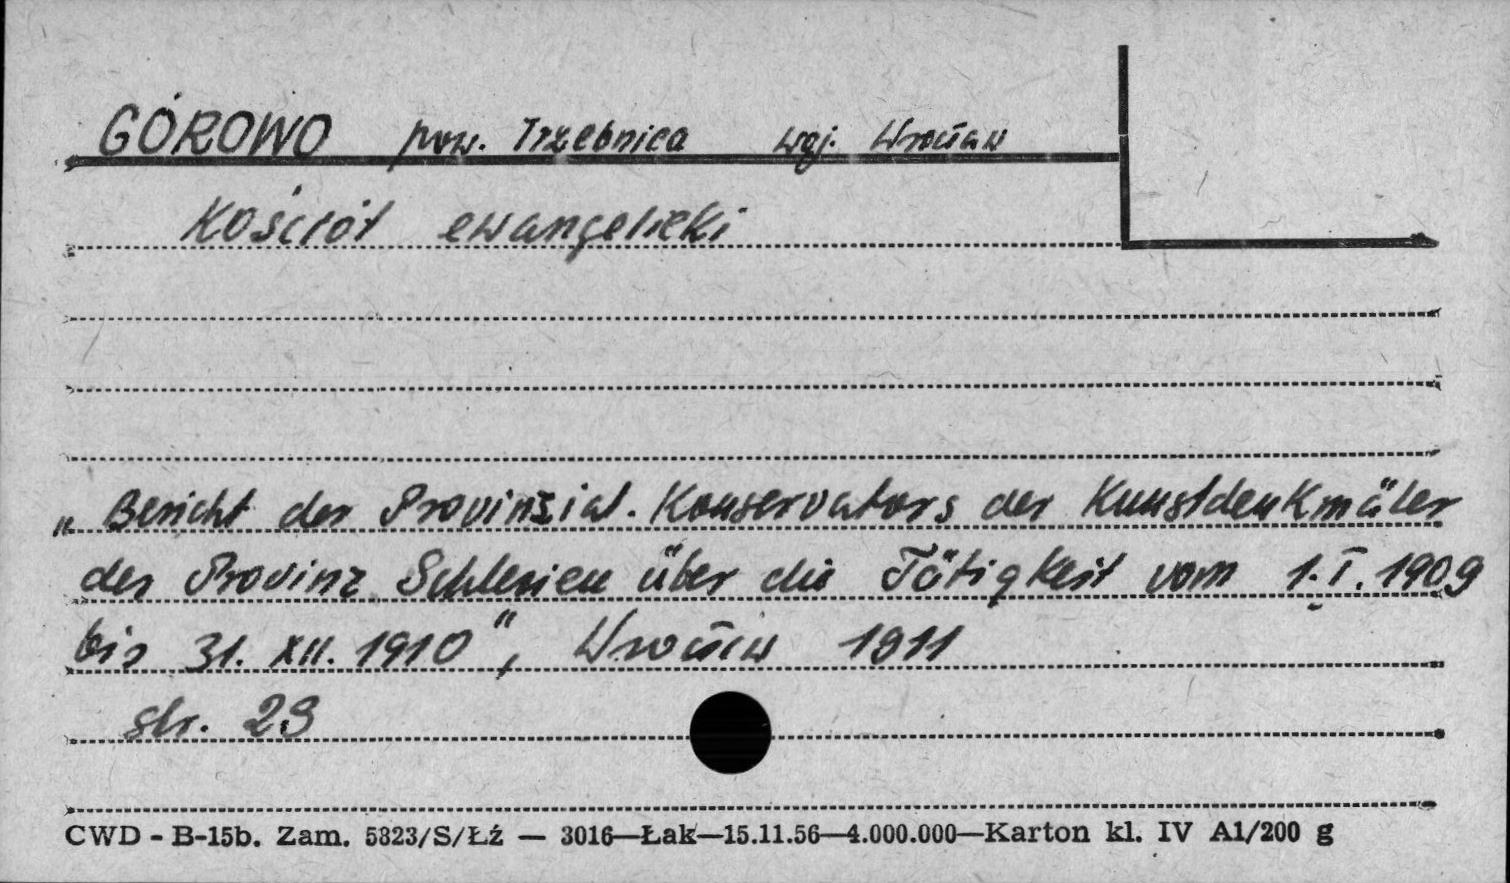 GÓROWO pow. Trzebnica woj. Wrocław
Kościół ewangelicki
„Bericht des Provinzial. Konservators der Kunstdenkmäler
der Provinz Schlesien über die Tätigkeit vom 1.I.1909
bis 31. XII. 1910", Wrocław 1911
str. 29
CWD - B-15b. Zam. 5823/S/Łź — 3016—Łak—15.11.56—4.000.000—Karton kl. IV A1/200 g